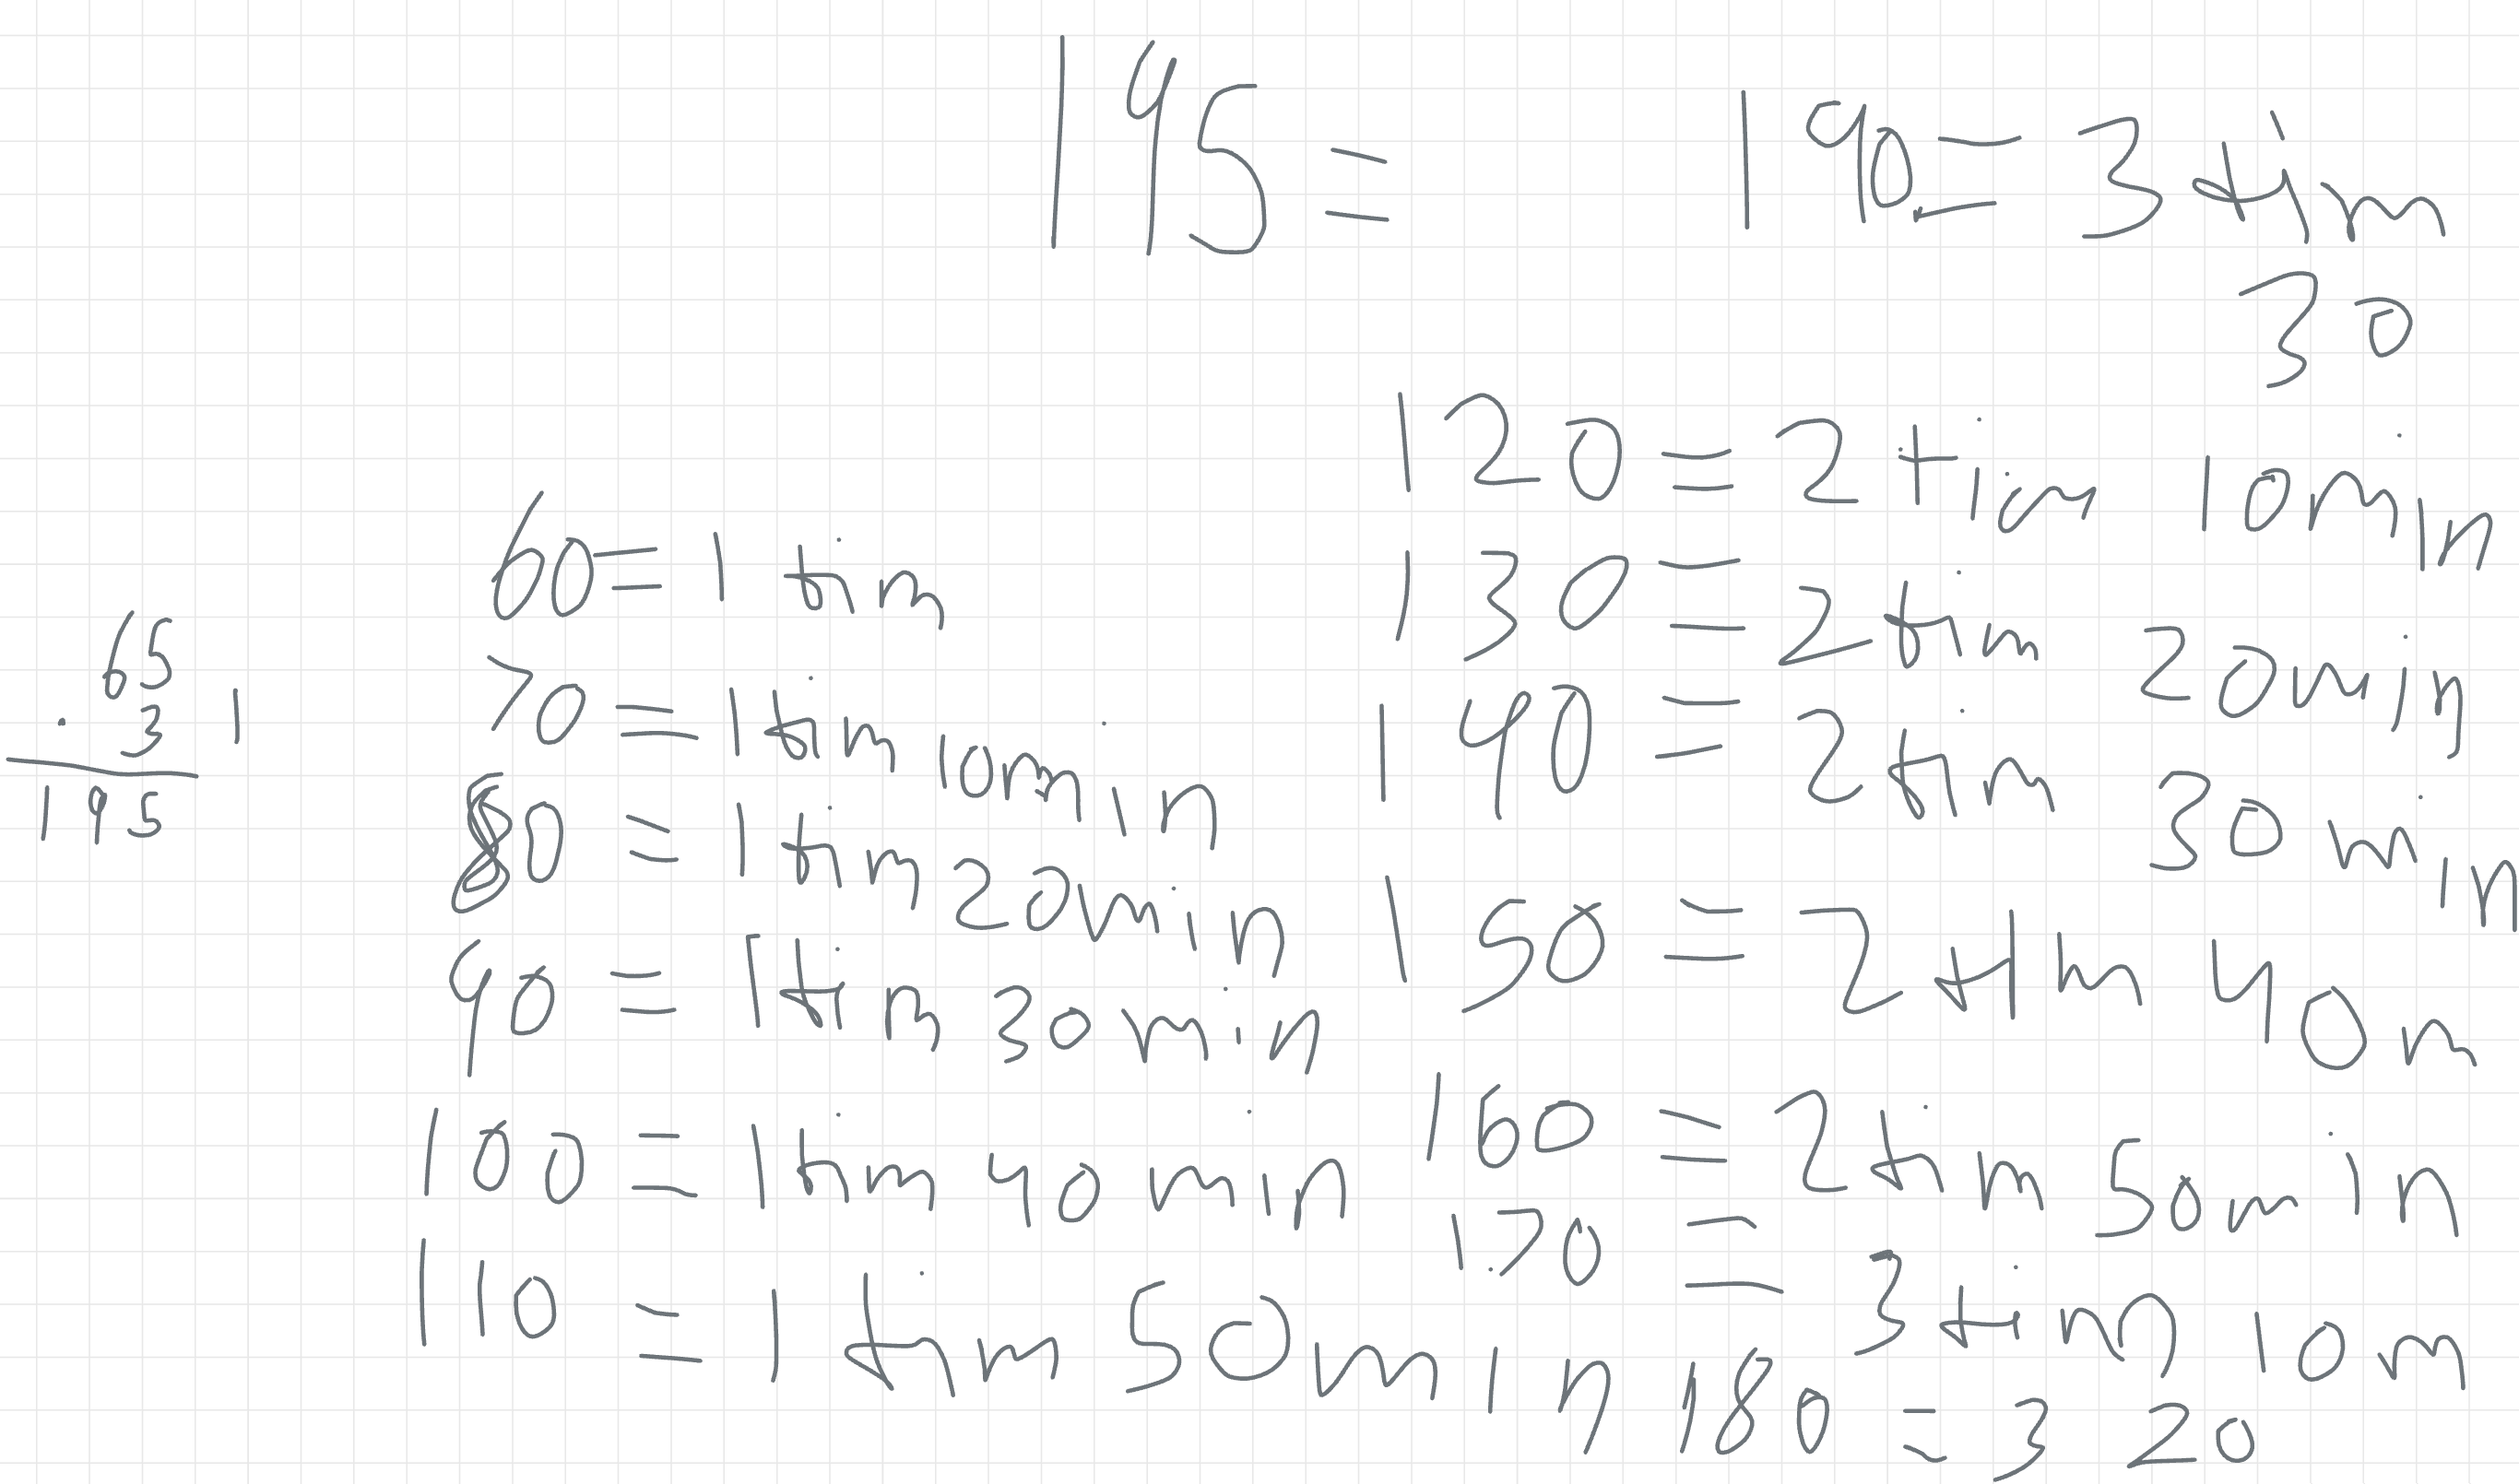 195 =
190 = 3 tim
30
65
· 3 1
195
60 = 1 tim
70 = 1 tim 10 min
80 = 1 tim 20 min
90 = 1 tim 30 min
100 = 1 tim 40 min
110 = 1 tim 50 min
120 = 2 tim 10 min
130 = 2 tim 20 min
140 = 2 tim 30 min
150 = 2 tim 40 m
160 = 2 tim 50 min
170 = 3 tim 10 m
180 = 3 20